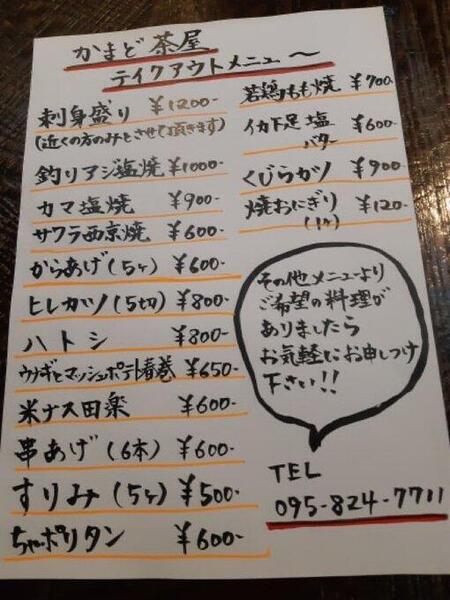 かまど茶屋
テイクアウトメニュー〜
刺身盛り ¥1200-
(近くの方のみとさせて頂きます)
釣りアジ塩焼 ¥1000-
カマ塩焼 ¥900-
サワラ西京焼 ¥600-
からあげ(5ヶ) ¥600-
ヒレカツ(5切) ¥800-
ハトシ ¥800-
ウナギとマッシュポテト春巻 ¥650-
米ナス田楽 ¥600-
串あげ(6本) ¥600-
すりみ(5ヶ) ¥500-
ちゃポリタン ¥600-
若鶏もも焼 ¥700-
イカ下足塩 ¥600-
バター
くじらカツ ¥900-
焼おにぎり ¥120-
(1ヶ)
その他メニューより
ご希望の料理が
ありましたら
お気軽にお申しつけ
下さい!!
TEL
095-824-7711